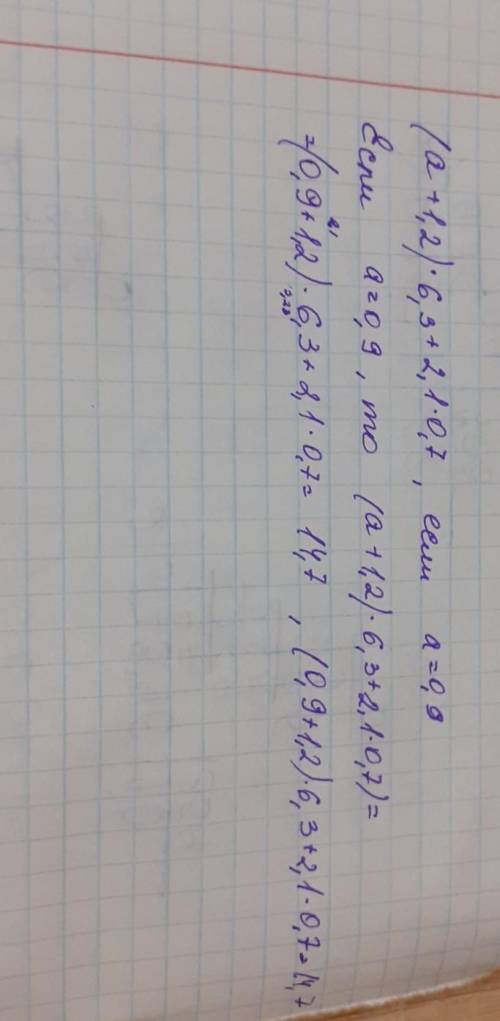 (а+1,2)·6,3+2,1·0,7, если а=0,9
Если а=0,9, то (а+1,2)·6,3+2,1·0,7)=
2,1
=(0,9+1,2)·6,3+2,1·0,7= 14,7, (0,9+1,2)·6,3+2,1·0,7=14,7